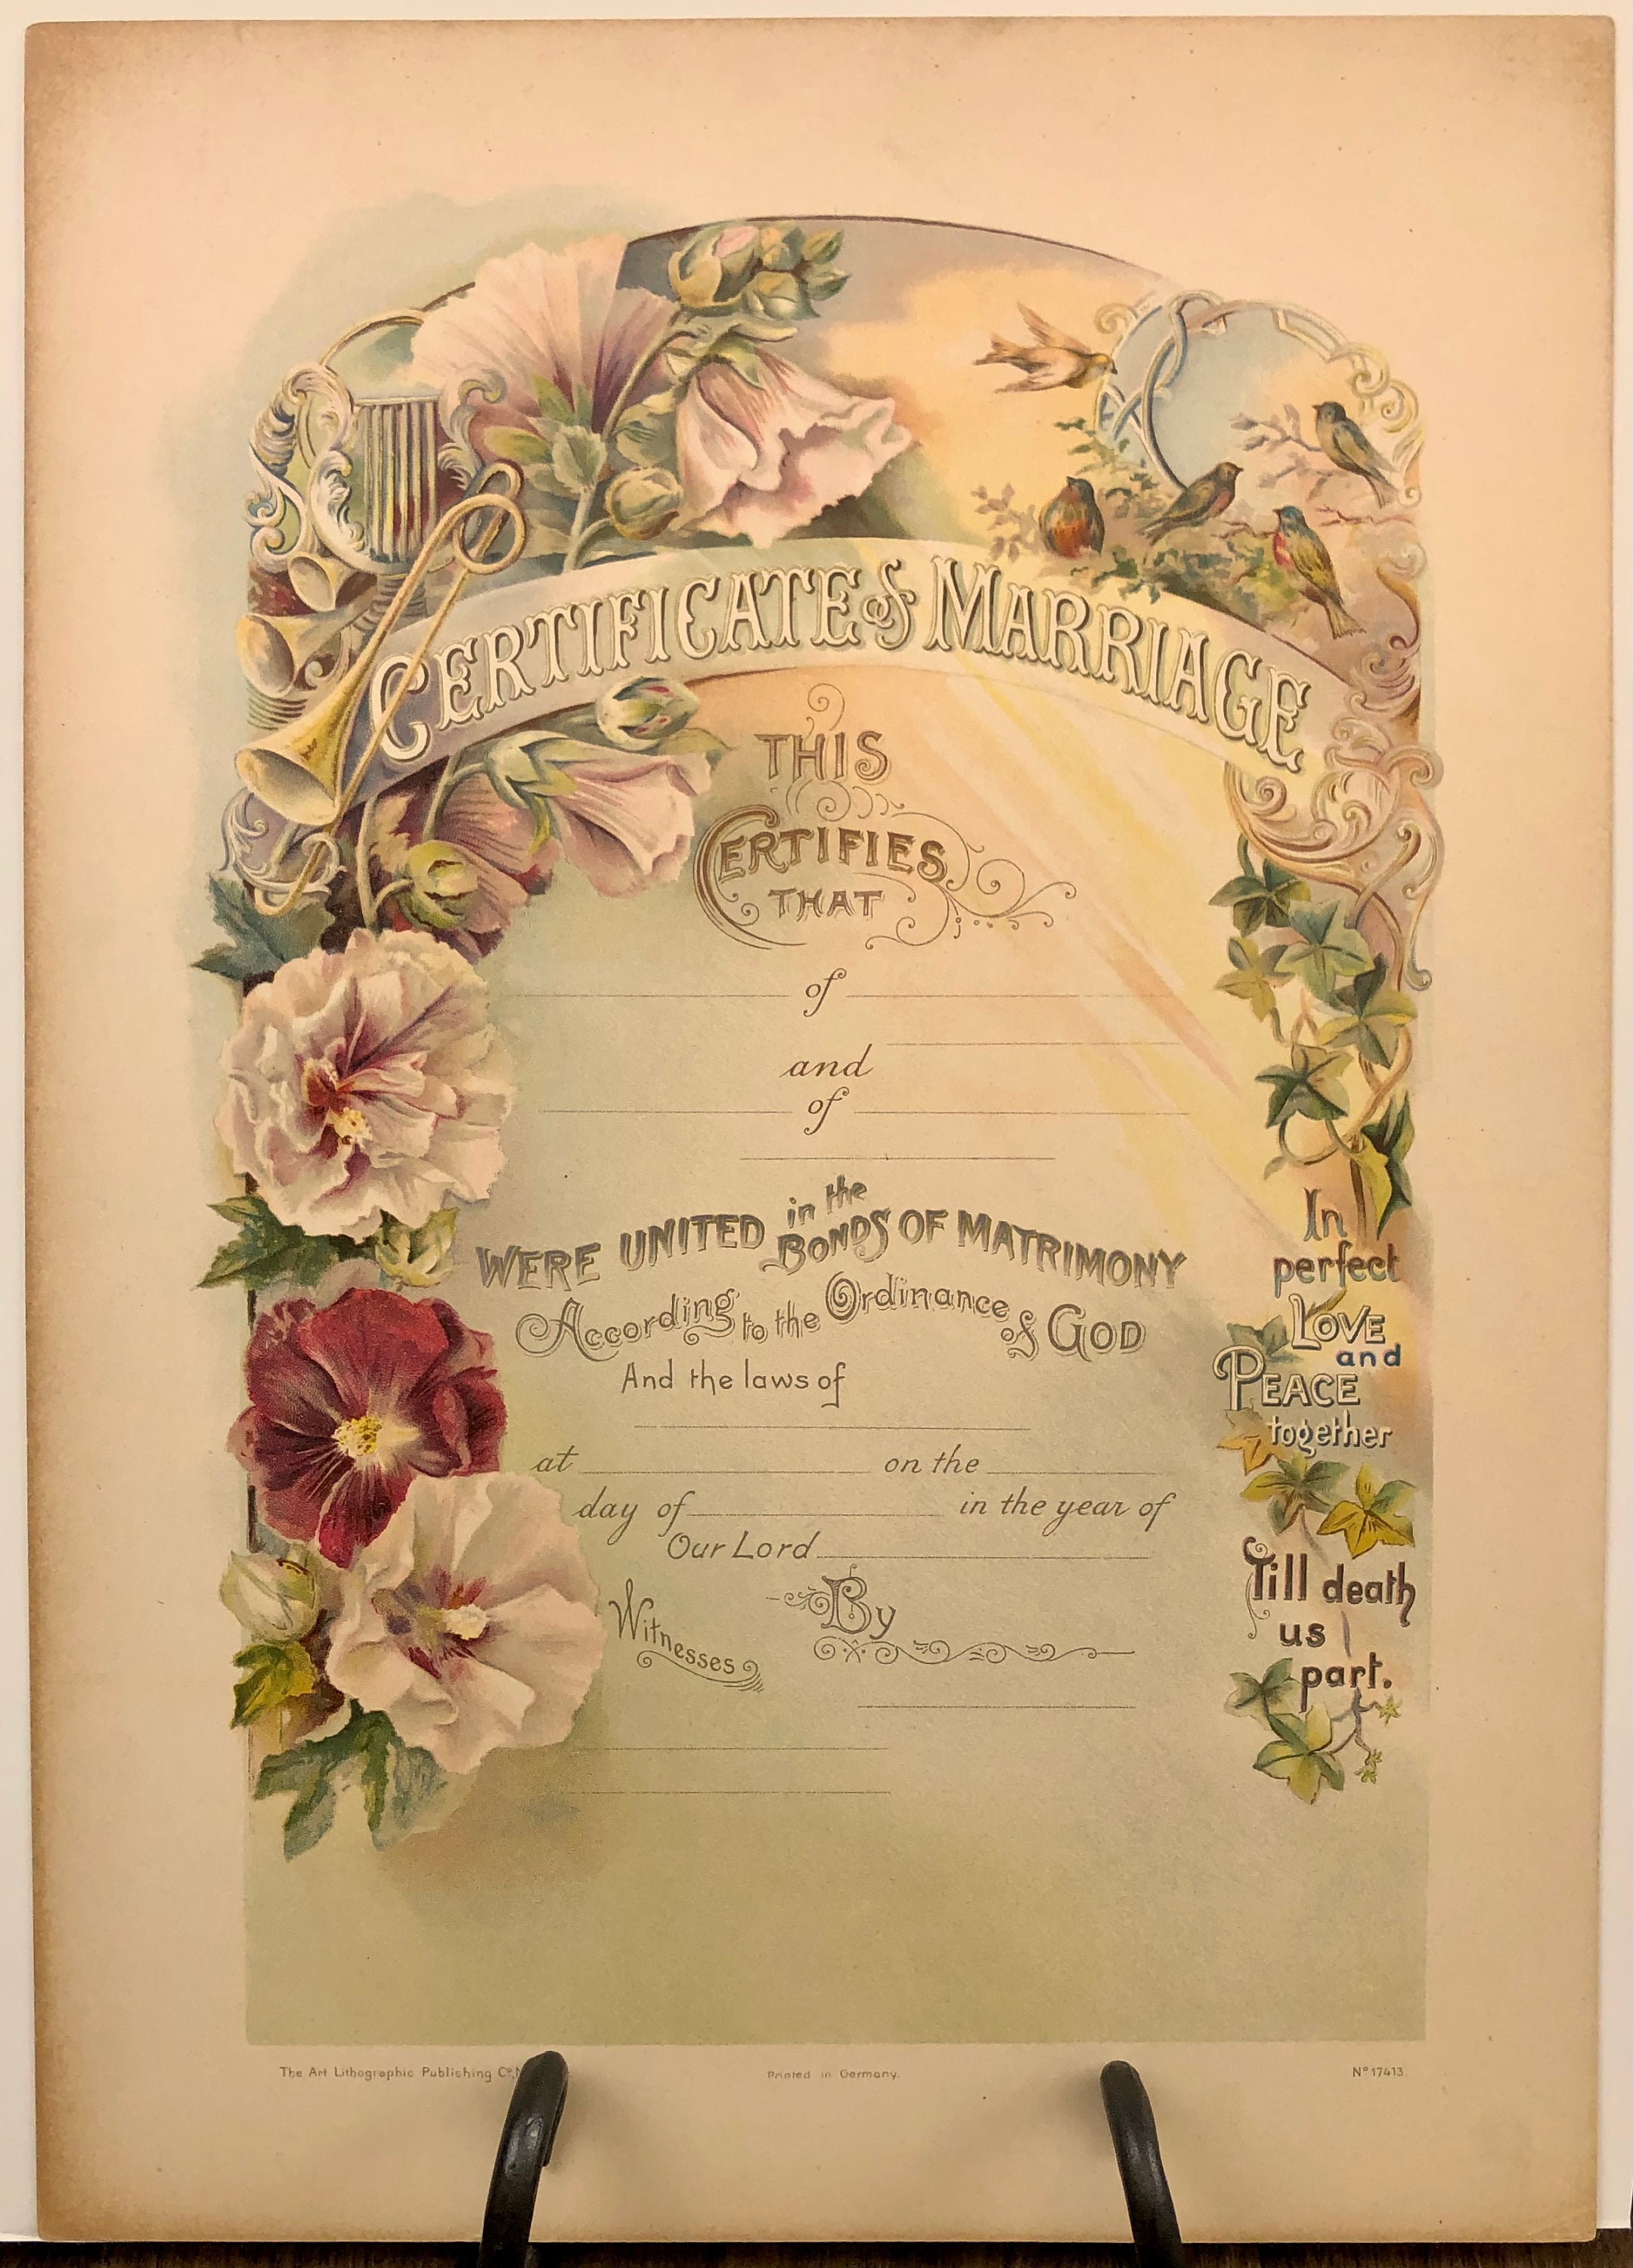 CERTIFICATE of MARRIAGE
THIS
CERTIFIES
THAT
of
and
of
WERE UNITED in the BONDS OF MATRIMONY
According to the Ordinance of GOD
And the laws of
at on the
day of in the year of
Our Lord
Witnesses By
In
perfect
LOVE
and
PEACE
together
Till death
us
part.
The Art Lithographic Publishing Co. Printed in Germany. No 17413